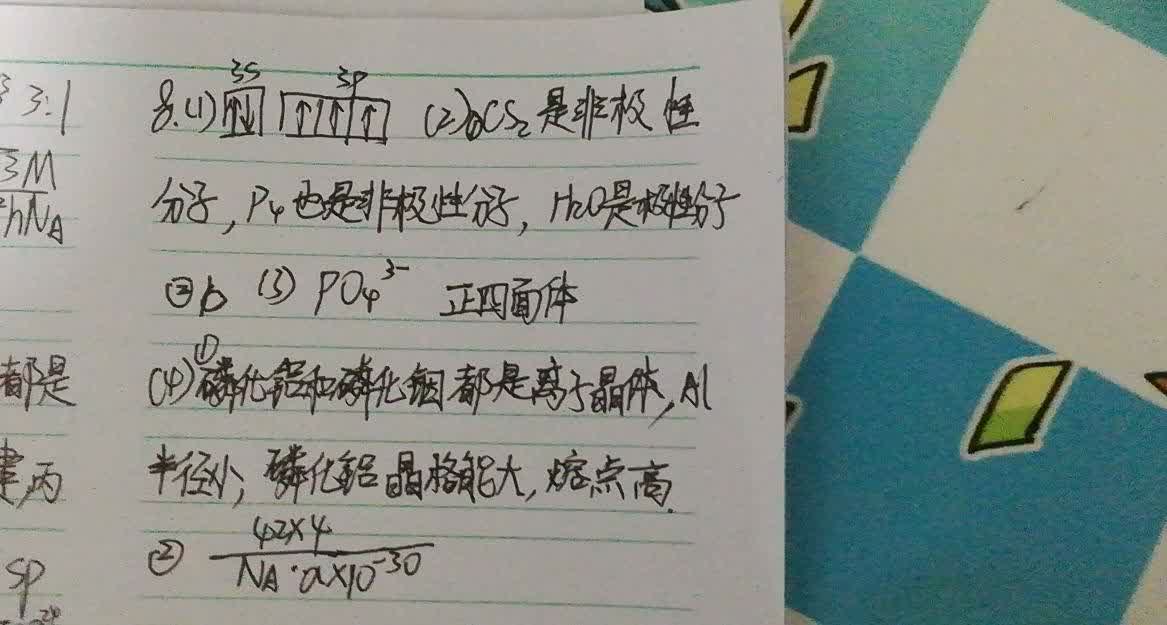 3:1
3M
hNA
都是
两
sp
3s 3p
8.(1) ↑↓ ↑ ↑ ↑ (2)①CS₂是非极性
分子,P₄也是非极性分子,H₂O是极性分子
②b (3) PO₄³⁻ 正四面体
(4)①磷化铝和磷化铟都是离子晶体,Al
半径小,磷化铝晶格能大,熔点高.
② 42×4
NA·a×10⁻³⁰